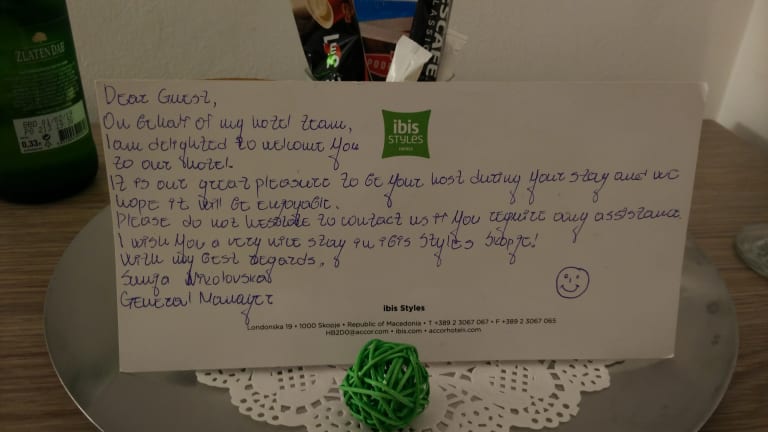 ZLATEN DAB
0.33
3in1
NESCAFE
CLASSIC
Dear Guest,
On behalf of my hotel team,
I am delighted to welcome you
to our hotel.
It is our great pleasure to be your host during your stay and we
hope it will be enjoyable.
Please do not hesitate to contact us if you require any assistance.
I wish you a very nice stay in ibis Styles Skopje!
With my best regards,
Sanja Nikolovska
General Manager
ibis
STYLES
HOTELS
ibis Styles
Londonska 19 • 1000 Skopje • Republic of Macedonia • T +389 2 3067 067 • F +389 2 3067 065
HB2D0@accor.com • ibis.com • accorhotels.com